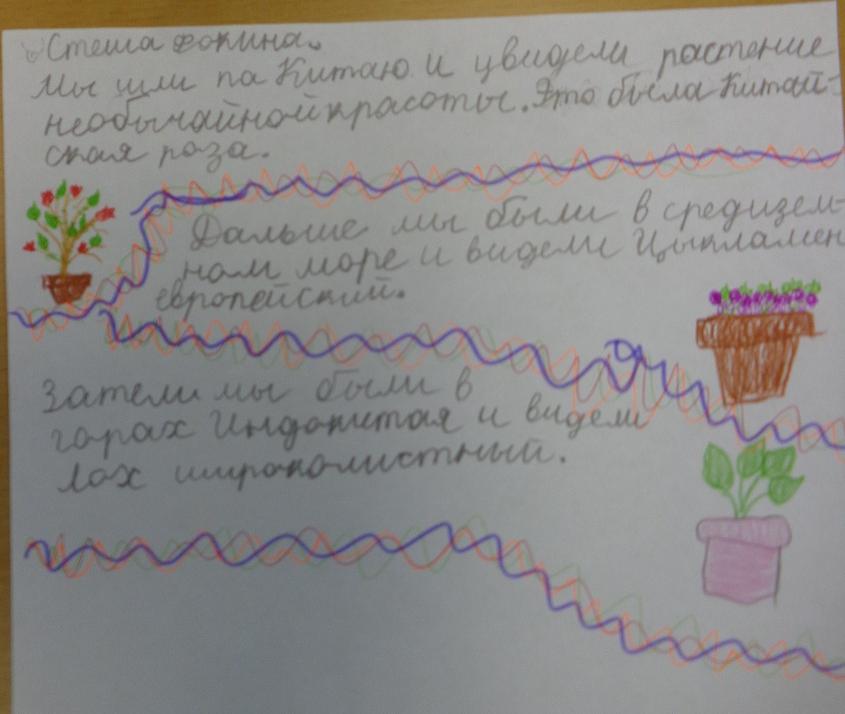 Стеша Фокина.
Мы шли по Китаю и увидели растение
необычайной красоты. Это была Китай-
ская роза.
Дальше мы были в средизем-
ном море и видели Цыкламен
европейский.
Затем мы были в
горах Индокитая и видели
Лох широколистный.